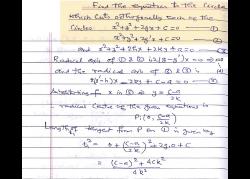 Find the equation to the circle
which cuts orthogonally each of the
circles x²+y²+2gx+c=0 —①
x²+y²+2g'x+c=0 —②
and x²+y²+2hx+2ky+a=0 —③
Radical axis of ① & ② is 2(g-g')x=0
and the radical axis of ② & ③ is
Substituting x in ⑤ y = (c-a)/2k
radical centre of the given equations is
P(0, (c-a)/2k)
Length of tangent from P on ① is given by
t² = 0 + ((c-a)/2k)² + 2g.0 + c
= ((c-a)² + 4ck²)/4k²